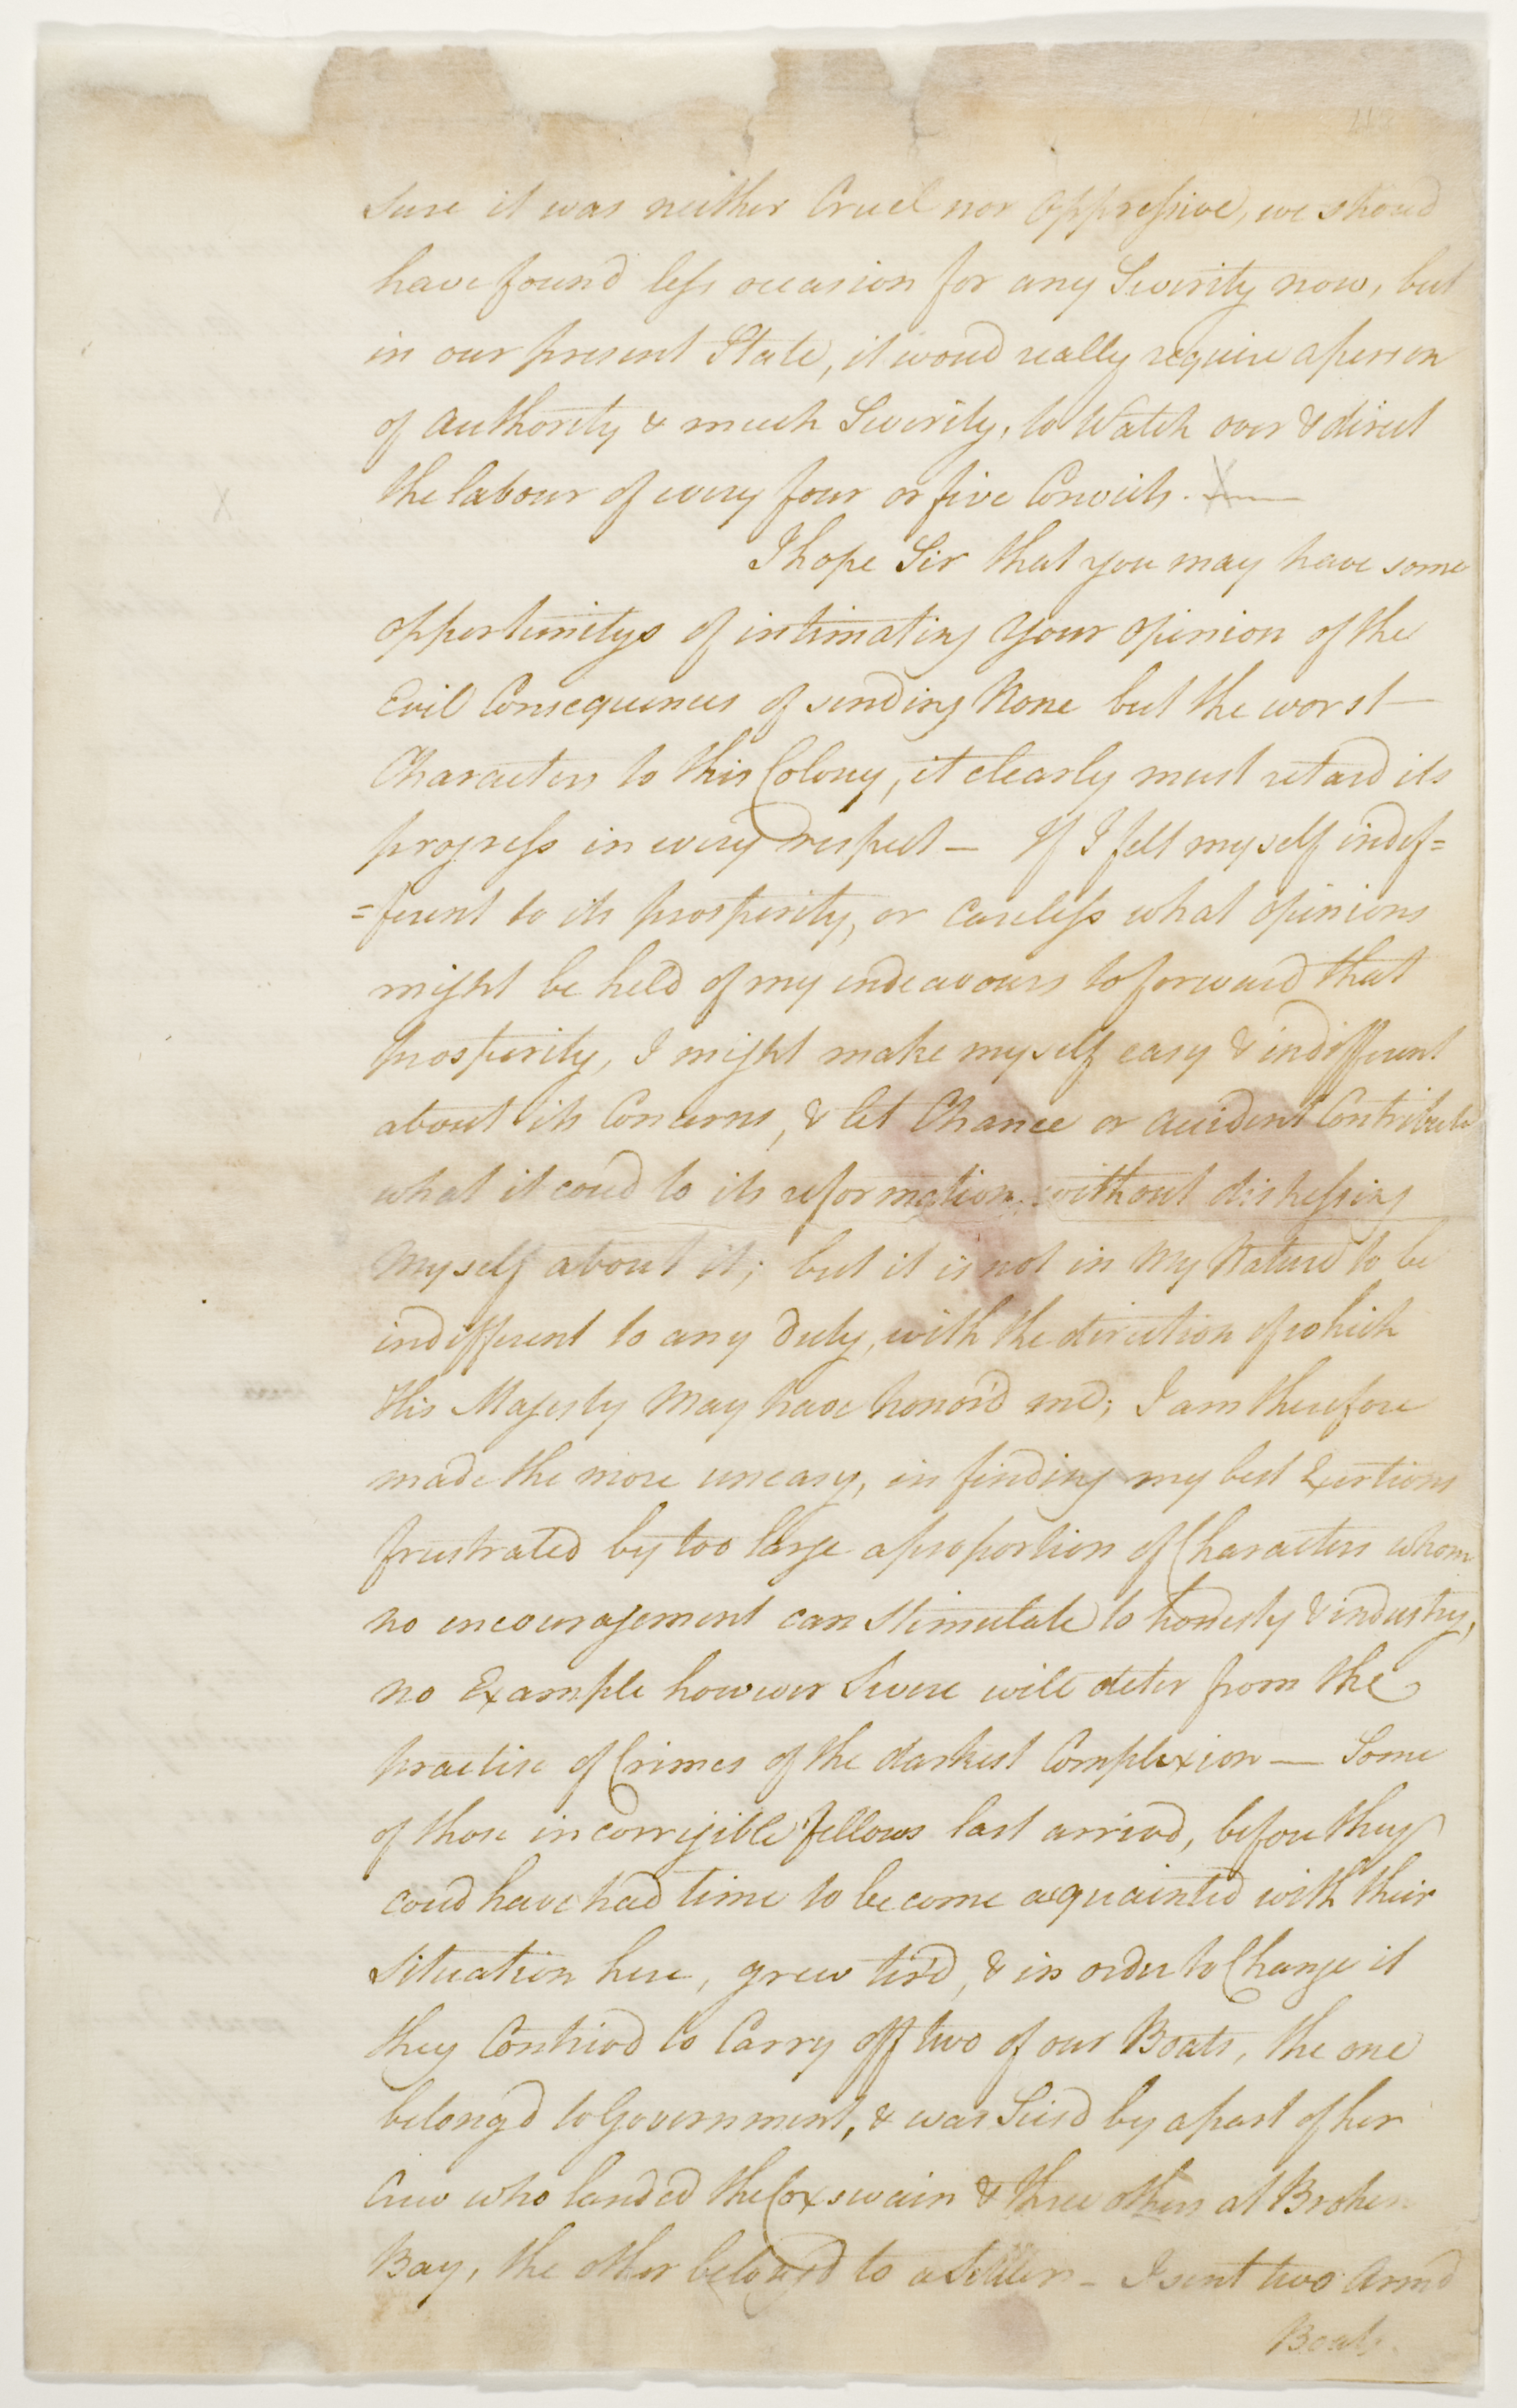 sure it was neither Cruel nor Oppressive, we shoud
have found less occasion for any Severity now, but
in our present State, it woud really require a person
of authority & much Severity, to Watch over & direct
the labour of every four or five Convicts.
I hope Sir that you may have some
opportunitys of intimating your opinion of the
Evil Consequences of sending None but the worst
Characters to this Colony, it clearly must retard its
progress in every respect — If I felt myself indif=
=ferent to its prosperity, or careless what opinions
might be held of my endeavours to forward that
prosperity, I might make myself easy & indifferent
about its Concerns, & let Chance or accident Contribute
what it coud to its reformation, without distressing
Myself about it; but it is not in My Nature to be
indifferent to any duty, with the direction of which
His Majesty May have honor'd me; I am therefore
made the more uneasy, in finding my best Exertions
frustrated by too large a proportion of Characters whom
no encouragement can Stimulate to honesty & industry,
no Example however Severe will deter from the
practise of Crimes of the darkest Complexion — Some
of those incorrigible fellows last arrivd, before they
coud have had time to become acquainted with their
Situation here, grew tir'd, & in order to Change it
they Contrivd to Carry off two of our Boats, the one
belong'd to Government, & was Seisd by a part of her
Crew who landed the Coxswain & three others at Broken
Bay, the other belong'd to a Settler — I sent two Armd
Boats